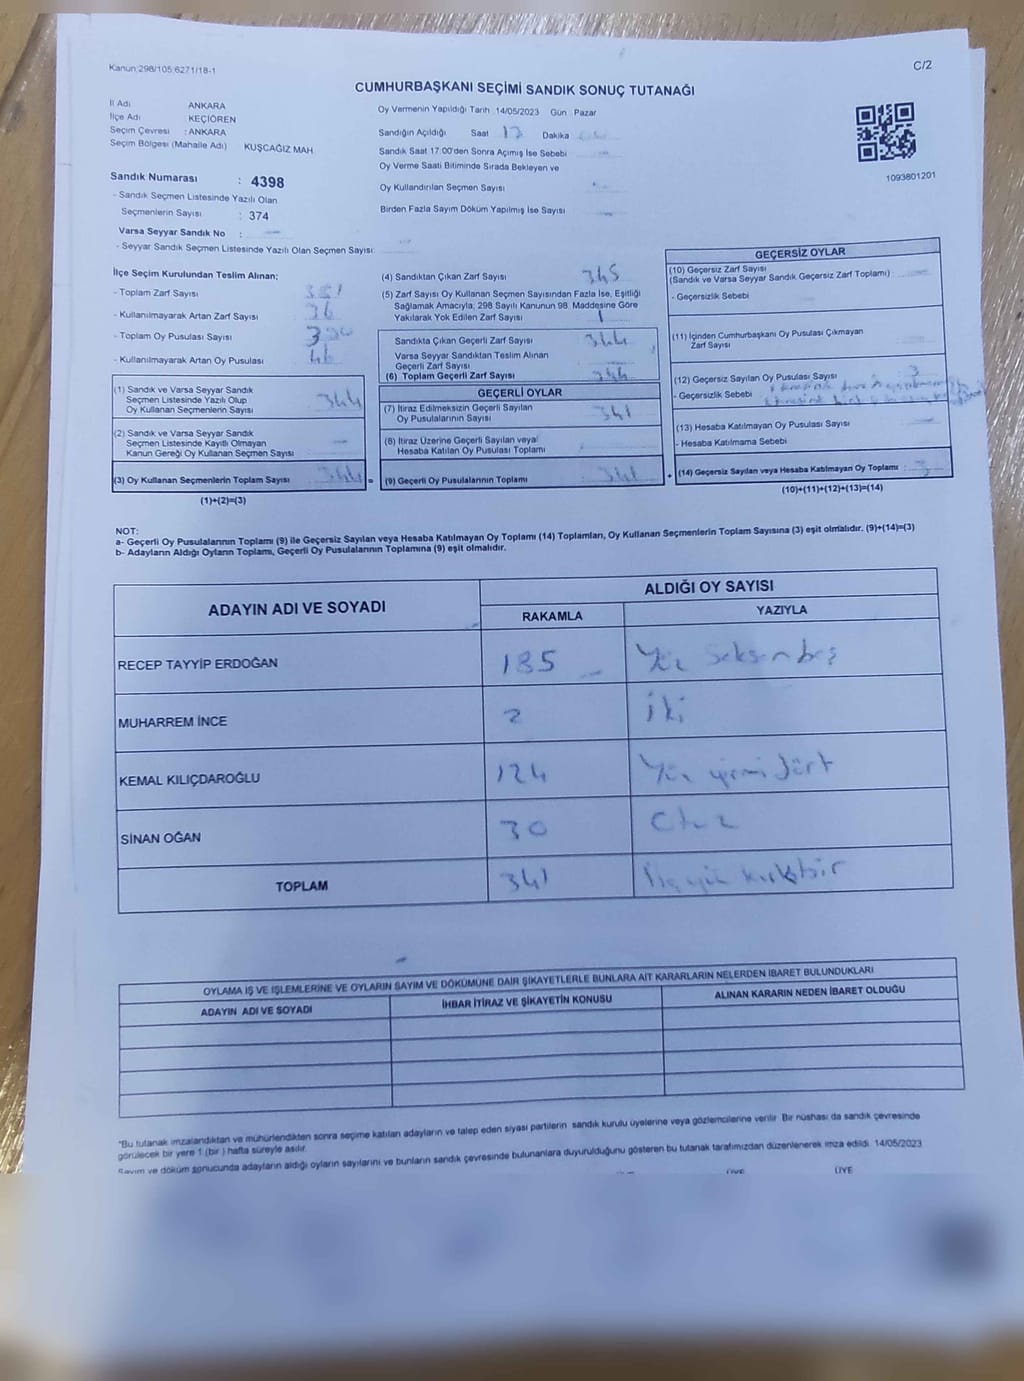 Kanun:298/105;6271/18-1
C/2
CUMHURBAŞKANI SEÇİMİ SANDIK SONUÇ TUTANAĞI
İl Adı ANKARA
İlçe Adı : KEÇİÖREN
Seçim Çevresi : ANKARA
Seçim Bölgesi (Mahalle Adı) KUŞCAĞIZ MAH.
Oy Vermenin Yapıldığı Tarih : 14/05/2023 Gün : Pazar
Sandığın Açıldığı Saat 17 Dakika
Sandık Saat 17:00'den Sonra Açımış İse Sebebi
Oy Verme Saati Bitiminde Sırada Bekleyen ve
Oy Kullandırılan Seçmen Sayısı
Birden Fazla Sayım Döküm Yapılmış İse Sayısı
1093801201
Sandık Numarası : 4398
- Sandık Seçmen Listesinde Yazılı Olan
Seçmenlerin Sayısı : 374
Varsa Seyyar Sandık No :
- Seyyar Sandık Seçmen Listesinde Yazılı Olan Seçmen Sayısı:
İlçe Seçim Kurulundan Teslim Alınan;
- Toplam Zarf Sayısı
- Kullanılmayarak Artan Zarf Sayısı
- Toplam Oy Pusulası Sayısı
- Kullanılmayarak Artan Oy Pusulası
(1) Sandık ve Varsa Seyyar Sandık
Seçmen Listesinde Yazılı Olup
Oy Kullanan Seçmenlerin Sayısı 344
(2) Sandık ve Varsa Seyyar Sandık
Seçmen Listesinde Kayıtlı Olmayan
Kanun Gereği Oy Kullanan Seçmen Sayısı
(3) Oy Kullanan Seçmenlerin Toplam Sayısı 344 =
(1)+(2)=(3)
(4) Sandıktan Çıkan Zarf Sayısı 345
(5) Zarf Sayısı Oy Kullanan Seçmen Sayısından Fazla İse, Eşitliği
Sağlamak Amacıyla; 298 Sayılı Kanunun 98. Maddesine Göre
Yakılarak Yok Edilen Zarf Sayısı 1
Sandıkta Çıkan Geçerli Zarf Sayısı 344
Varsa Seyyar Sandıktan Teslim Alınan
Geçerli Zarf Sayısı
(6) Toplam Geçerli Zarf Sayısı 344
GEÇERLİ OYLAR
(7) İtiraz Edilmeksizin Geçerli Sayılan
Oy Pusulalarının Sayısı 341
(8) İtiraz Üzerine Geçerli Sayılan veya
Hesaba Katılan Oy Pusulası Toplamı
(9) Geçerli Oy Pusulalarının Toplamı 341 +
GEÇERSİZ OYLAR
(10) Geçersiz Zarf Sayısı
(Sandık ve Varsa Seyyar Sandık Geçersiz Zarf Toplamı)
- Geçersizlik Sebebi
(11) İçinden Cumhurbaşkanı Oy Pusulası Çıkmayan
Zarf Sayısı
(12) Geçersiz Sayılan Oy Pusulası Sayısı : 3
- Geçersizlik Sebebi
(13) Hesaba Katılmayan Oy Pusulası Sayısı
- Hesaba Katılmama Sebebi
(14) Geçersiz Sayılan veya Hesaba Katılmayan Oy Toplamı : 3
(10)+(11)+(12)+(13)=(14)
NOT:
a- Geçerli Oy Pusulalarının Toplamı (9) ile Geçersiz Sayılan veya Hesaba Katılmayan Oy Toplamı (14) Toplamları, Oy Kullanan Seçmenlerin Toplam Sayısına (3) eşit olmalıdır. (9)+(14)=(3)
b- Adayların Aldığı Oyların Toplamı, Geçerli Oy Pusulalarının Toplamına (9) eşit olmalıdır.
ADAYIN ADI VE SOYADI ALDIĞI OY SAYISI
RAKAMLA YAZIYLA
RECEP TAYYİP ERDOĞAN 185 Yüz seksen beş
MUHARREM İNCE 2 İki
KEMAL KILIÇDAROĞLU 124 Yüz yirmi dört
SİNAN OĞAN 30 Otuz
TOPLAM 341 Üçyüz kırkbir
OYLAMA İŞ VE İŞLEMLERİNE VE OYLARIN SAYIM VE DÖKÜMÜNE DAİR ŞİKAYETLERLE BUNLARA AİT KARARLARIN NELERDEN İBARET BULUNDUKLARI
ADAYIN ADI VE SOYADI İHBAR İTİRAZ VE ŞİKAYETİN KONUSU ALINAN KARARIN NEDEN İBARET OLDUĞU
*Bu tutanak imzalandıktan ve mühürlendikten sonra seçime katılan adayların ve talep eden siyasi partilerin sandık kurulu üyelerine veya gözlemcilerine verilir. Bir nüshası da sandık çevresinde
görülecek bir yere 1 (bir ) hafta süreyle asılır.
Sayım ve döküm sonucunda adayların aldığı oyların sayılarını ve bunların sandık çevresinde bulunanlara duyurulduğunu gösteren bu tutanak tarafımızdan düzenlenerek imza edildi. 14/05/2023
ÜYE ÜYE